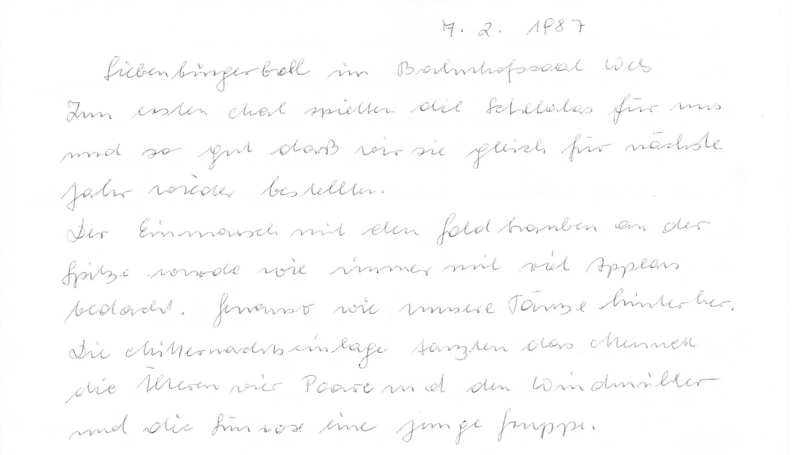 7. 2. 1987
Siebenbürgerball im Bahnhofssaal Wels
Zum ersten Mal spielten die für uns
und so gut daß wir sie gleich für nächste
Jahr wieder bestellten.
Der Einmarsch mit den Goldhauben an der
Spitze wurde wie immer mit viel Applaus
bedacht. Genauso wie unsere Tänze hinterher.
Die Mitternachtseinlage tanzten das Menuett
die Älteren vier Paare und den Windmüller
und die eine junge Gruppe.